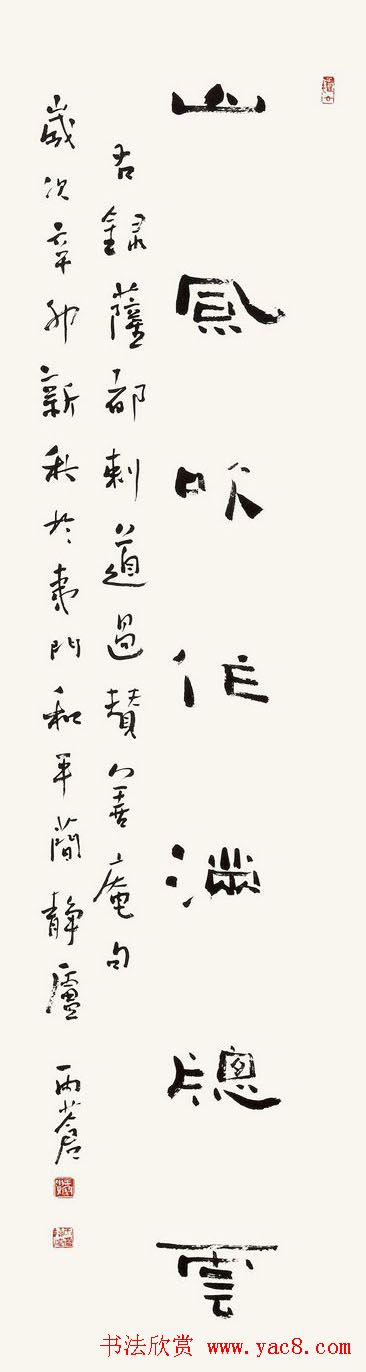 山風吹作滿牕雲
右錄薩都剌道過贊善庵句
歲次辛卯新秋於夷門和平簡靜廬
书法欣赏 www.yac8.com